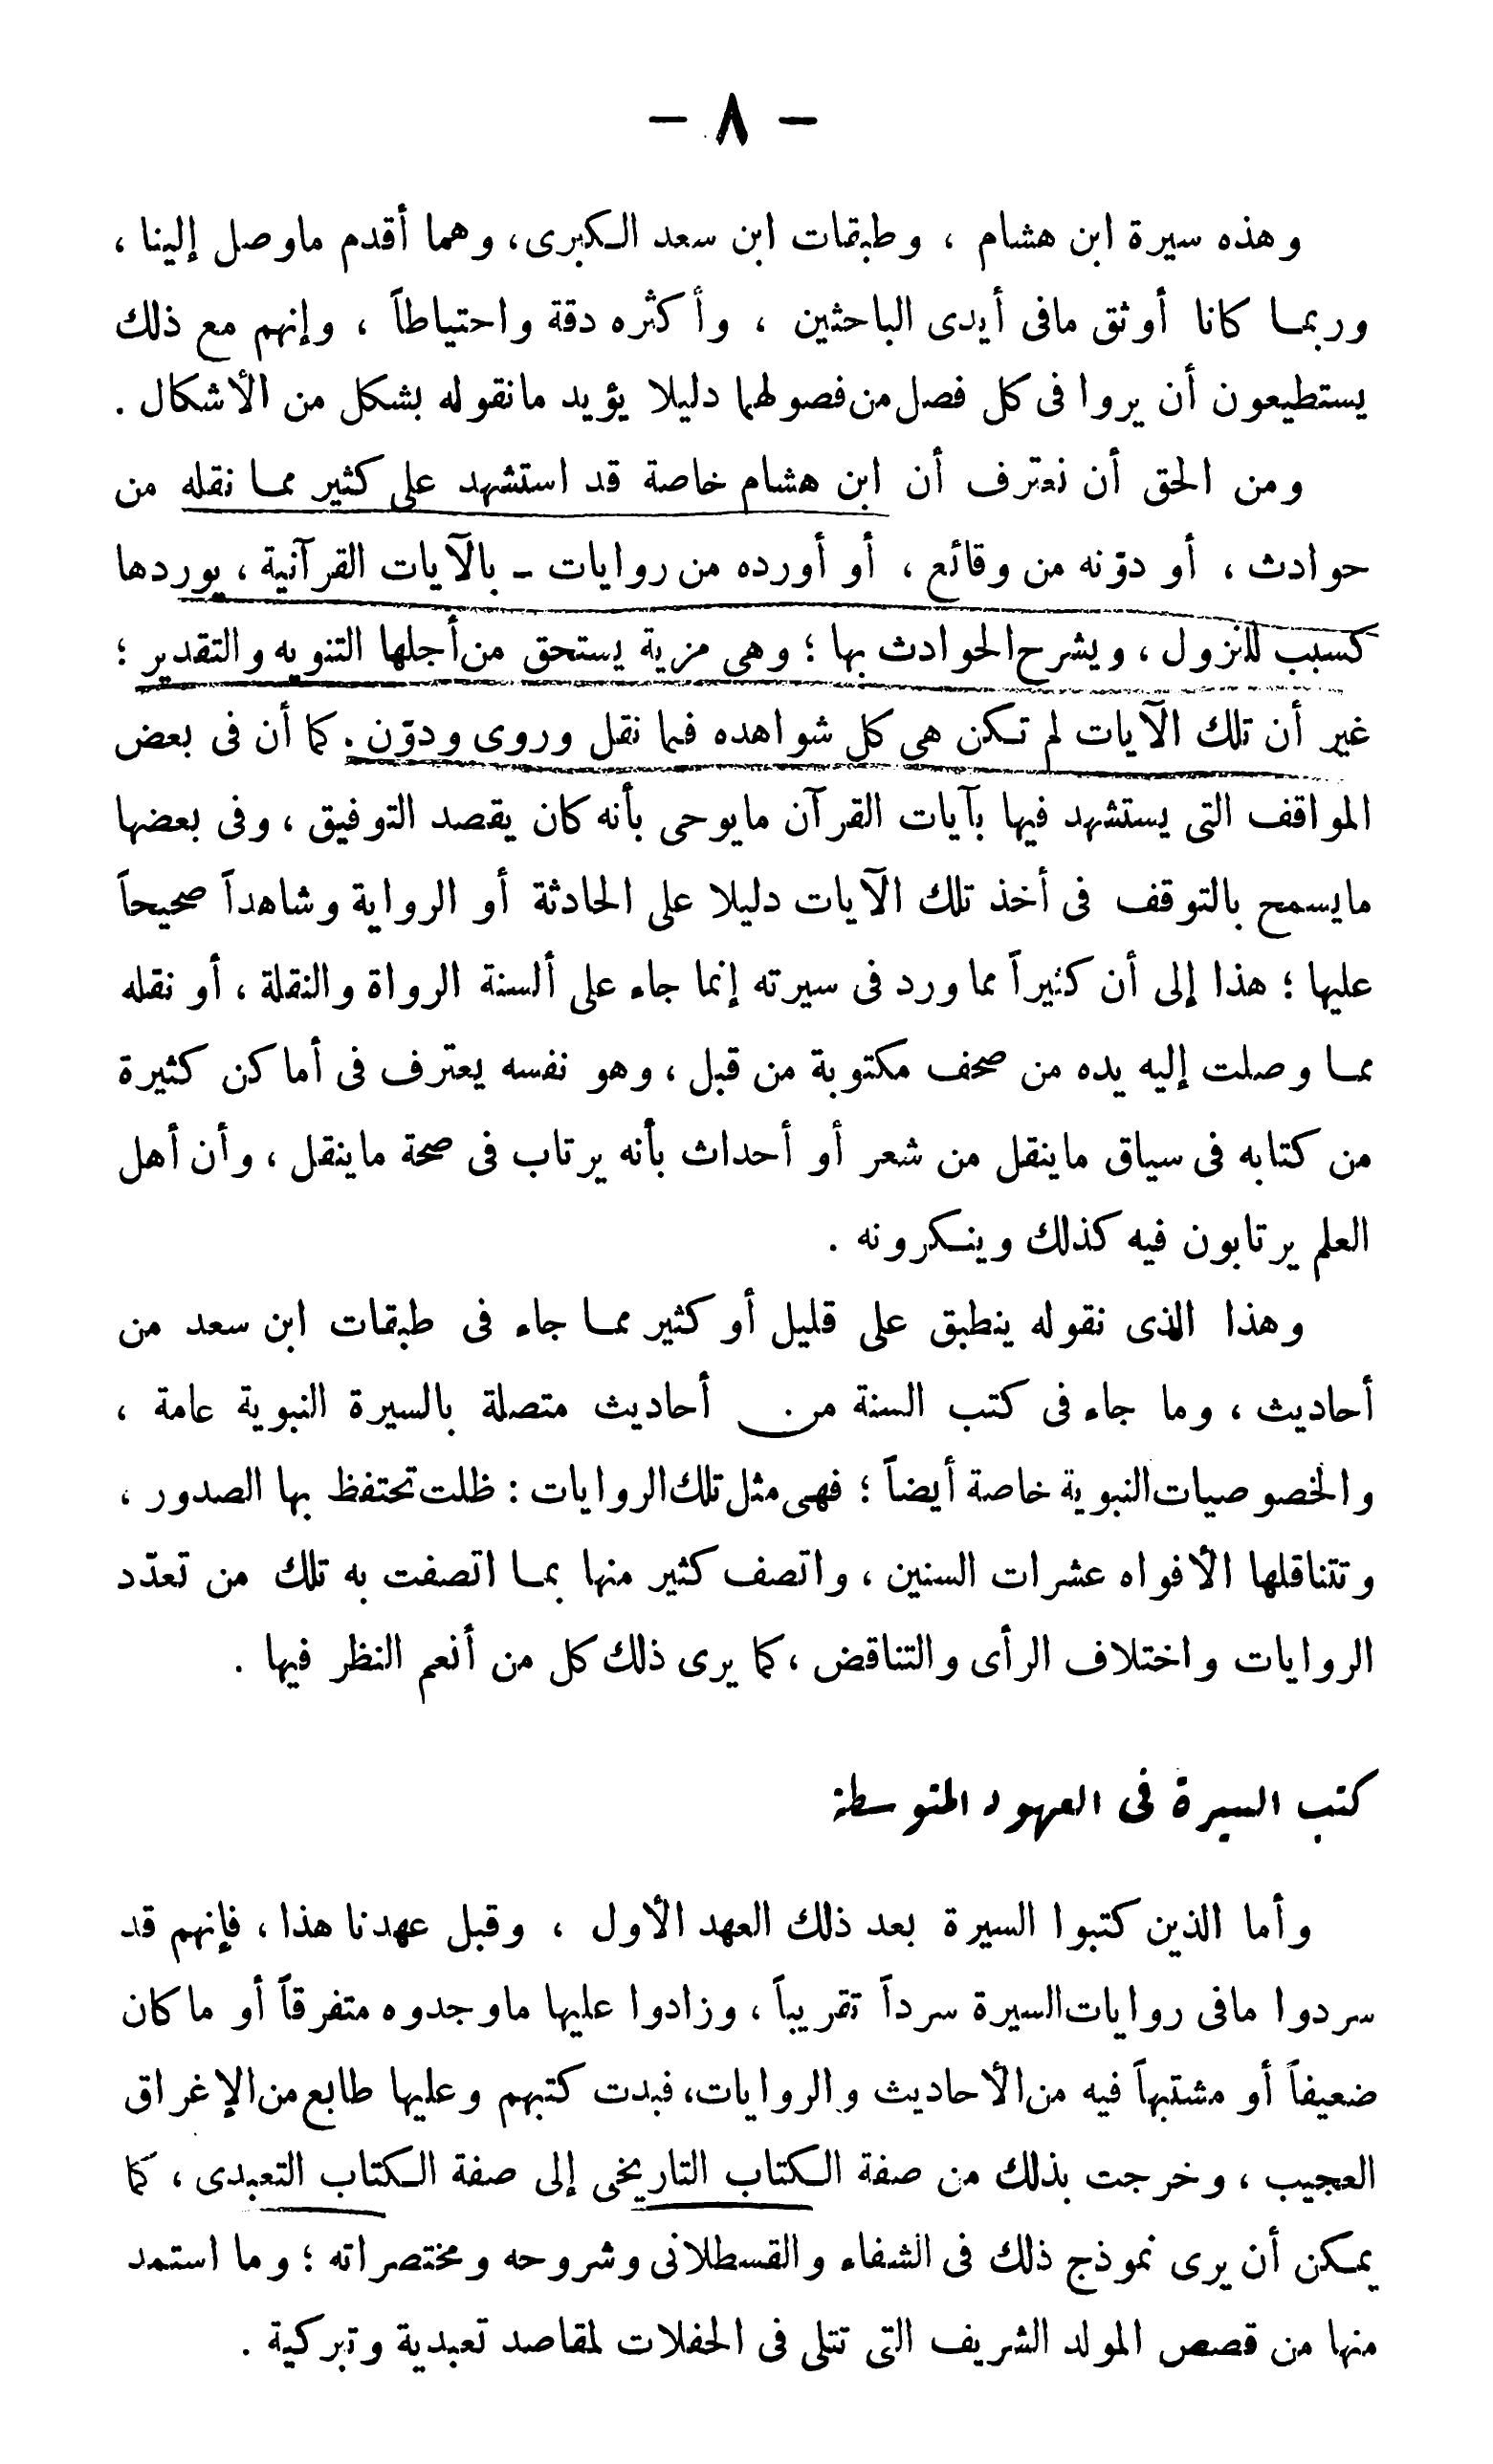 — ٨ —
وهذه سيرة ابن هشام ، وطبقات ابن سعد الكبرى، وهما أقدم ماوصل إلينا ،
وربما كانا أوثق مافى أيدى الباحثين ، وأكثره دقة واحتياطاً ، وإنهم مع ذلك
يستطيعون أن يروا فى كل فصل من فصولهما دليلا يؤيد مانقوله بشكل من الأشكال .
ومن الحق أن نعترف أن ابن هشام خاصة قد استشهد على كثير مما نقله من
حوادث ، أو دوّنه من وقائع ، أو أورده من روايات – بالآيات القرآنية ، يوردها
كسبب للنزول ، ويشرح الحوادث بها ؛ وهى مزية يستحق من أجلها التنويه والتقدير ؛
غير أن تلك الآيات لم تكن هى كل شواهده فيما نقل وروى ودوّن . كما أن فى بعض
المواقف التى يستشهد فيها بآيات القرآن مايوحى بأنه كان يقصد التوفيق ، وفى بعضها
مايسمح بالتوقف فى أخذ تلك الآيات دليلا على الحادثة أو الرواية وشاهداً صحيحاً
عليها ؛ هذا إلى أن كثيراً مما ورد فى سيرته إنما جاء على ألسنة الرواة والنقلة ، أو نقله
مما وصلت إليه يده من صحف مكتوبة من قبل ، وهو نفسه يعترف فى أماكن كثيرة
من كتابه فى سياق ماينقل من شعر أو أحداث بأنه يرتاب فى صحة ماينقل ، وأن أهل
العلم يرتابون فيه كذلك وينكرونه .
وهذا الذى نقوله ينطبق على قليل أو كثير مما جاء فى طبقات ابن سعد من
أحاديث ، وما جاء فى كتب السنة من أحاديث متصلة بالسيرة النبوية عامة ،
والخصوصيات النبوية خاصة أيضاً ؛ فهى مثل تلك الروايات : ظلت تحتفظ بها الصدور ،
وتتناقلها الأفواه عشرات السنين ، واتصف كثير منها بما اتصفت به تلك من تعدّد
الروايات واختلاف الرأى والتناقض ، كما يرى ذلك كل من أنعم النظر فيها .
كتب السيرة فى العهود المتوسطة
وأما الذين كتبوا السيرة بعد ذلك العهد الأول ، وقبل عهدنا هذا ، فإنهم قد
سردوا مافى روايات السيرة سرداً تقريباً ، وزادوا عليها ماوجدوه متفرقاً أو ماكان
ضعيفاً أو مشتبهاً فيه من الأحاديث والروايات، فبدت كتبهم وعليها طابع من الإغراق
العجيب ، وخرجت بذلك من صفة الكتاب التاريخى إلى صفة الكتاب التعبدى ، كما
يمكن أن يرى نموذج ذلك فى الشفاء والقسطلانى وشروحه ومختصراته ؛ وما استمد
منها من قصص المولد الشريف التى تتلى فى الحفلات لمقاصد تعبدية وتبركية .